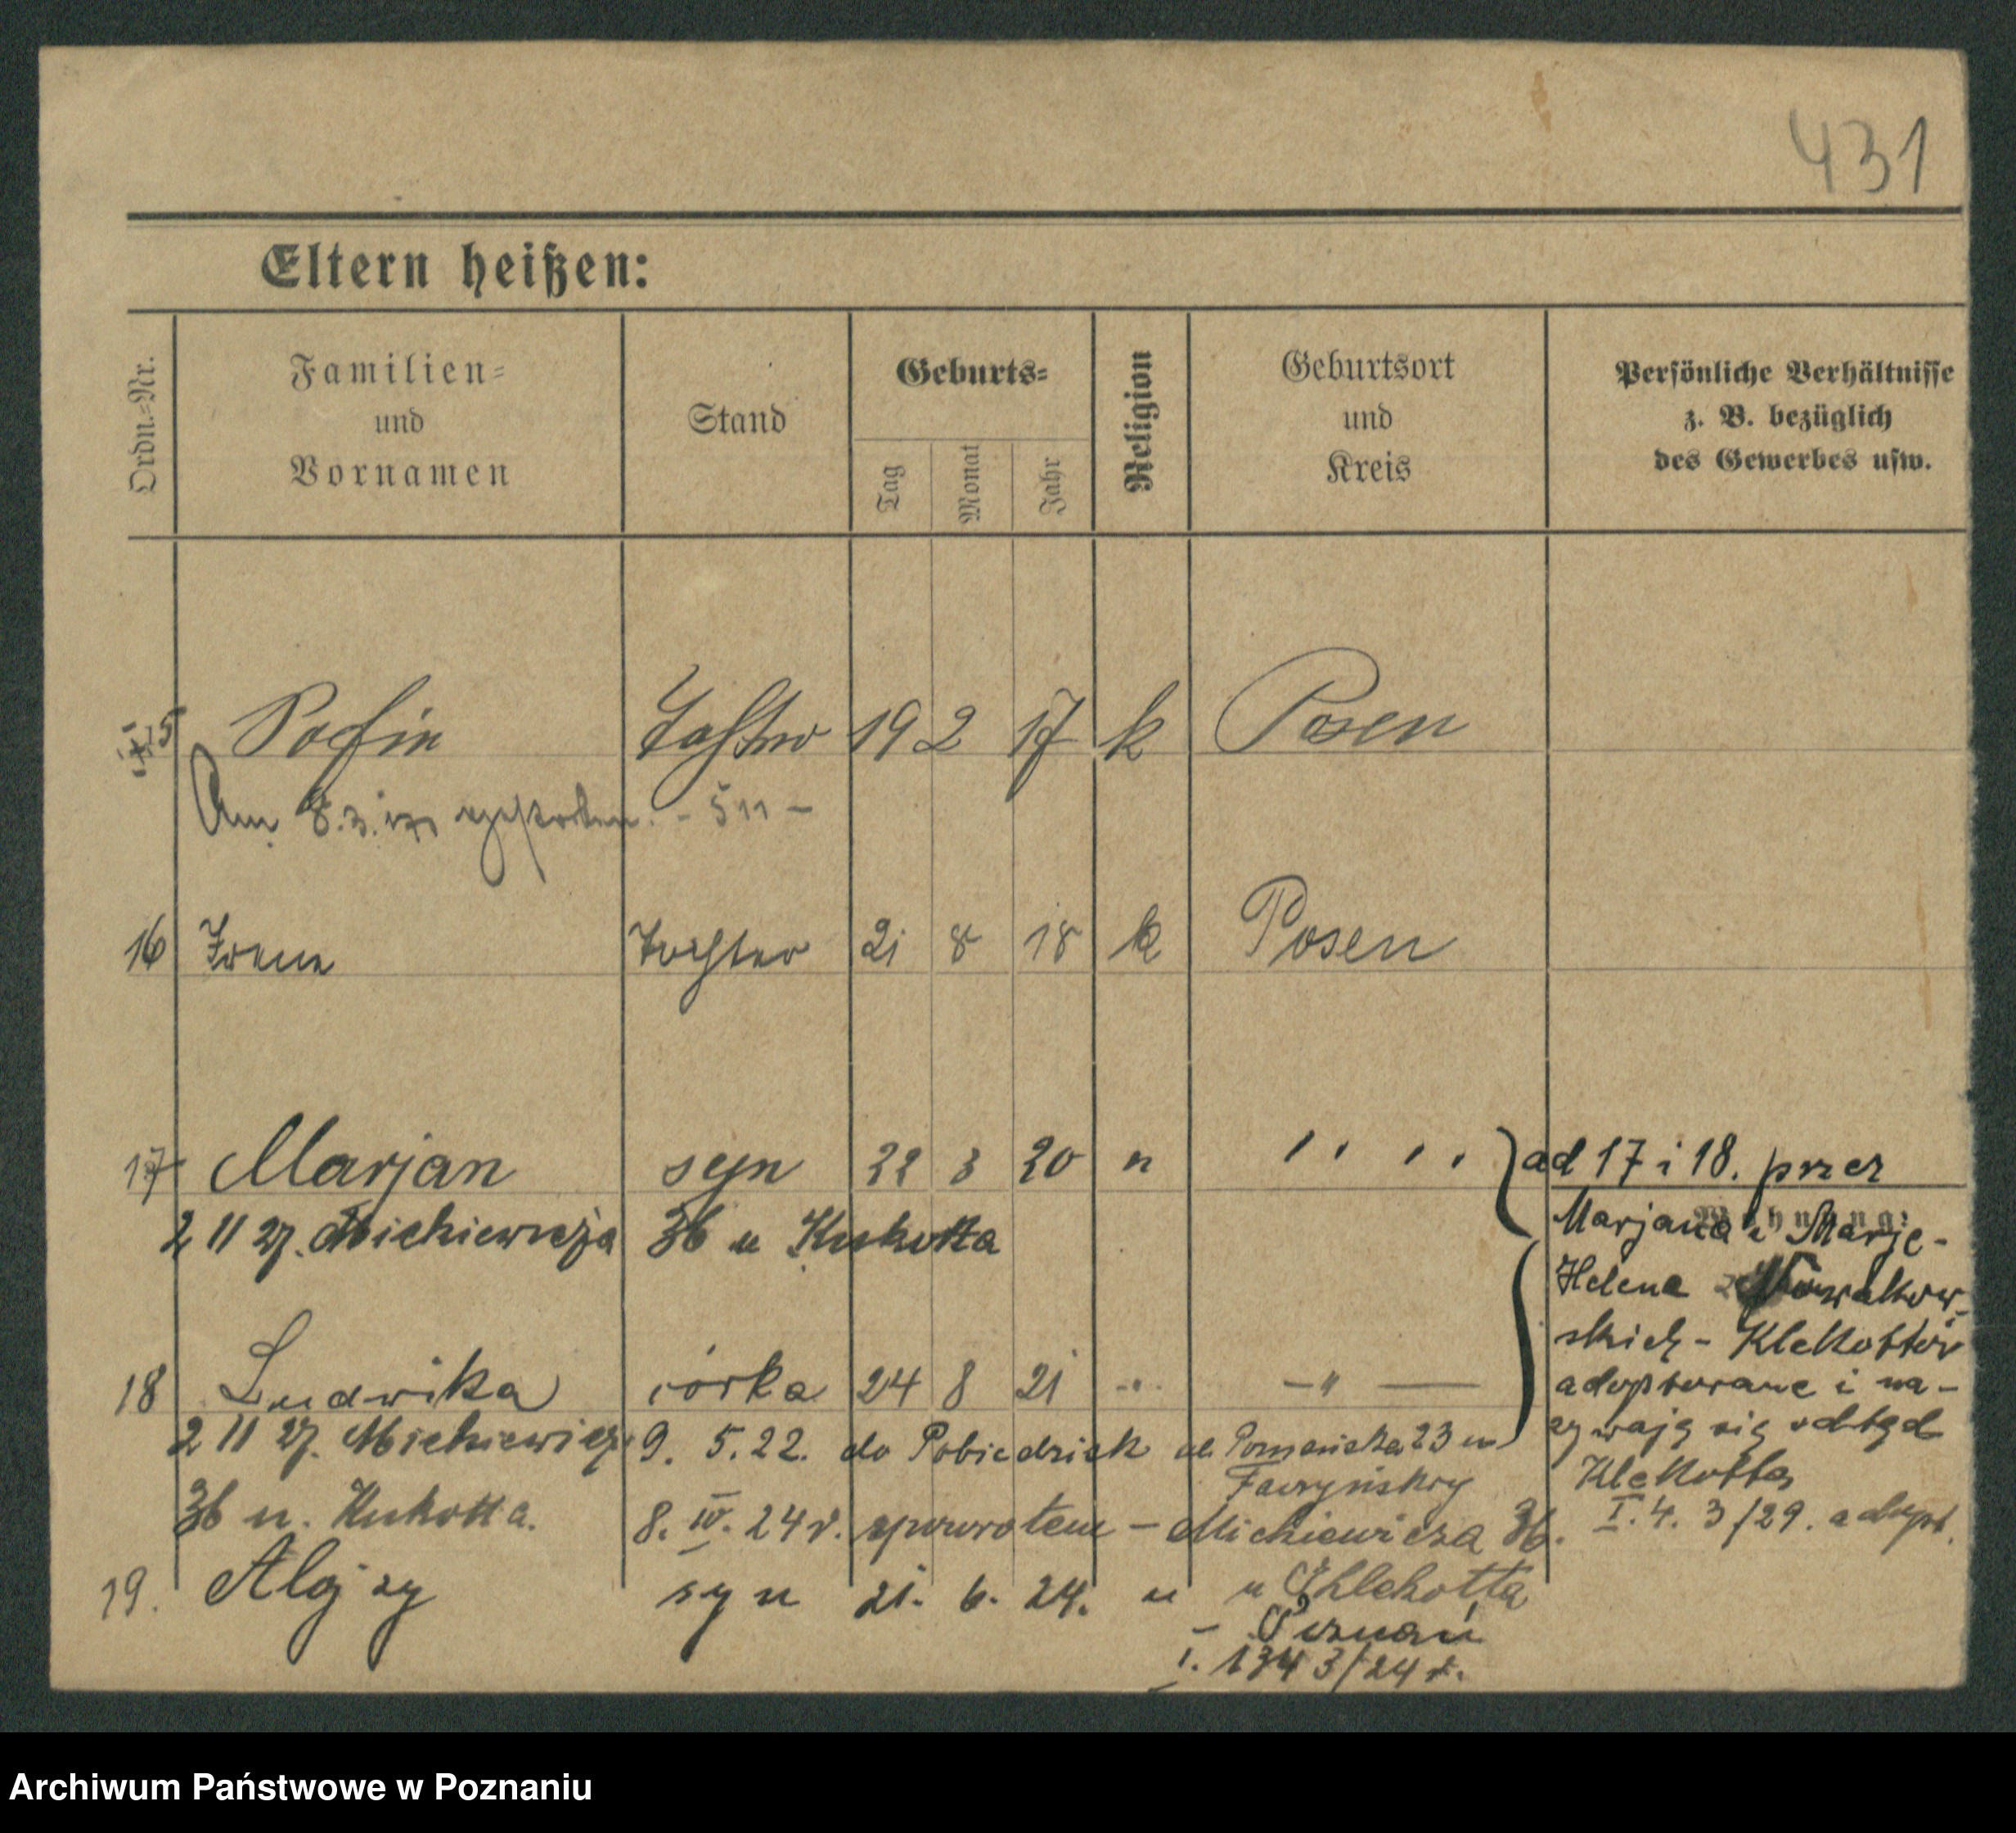 431
Eltern heißen:
Ordn.-Nr.
Familien-
und
Vornamen
Stand
Geburts-
Tag
Monat
Jahr
Religion
Geburtsort
und
Kreis
Persönliche Verhältnisse
z. B. bezüglich
des Gewerbes usw.
15 Sofie Tochter 19 2 17 k Posen
Am 8.3. gestorben. - 511 -
16 Irene Tochter 21 8 18 k Posen
17 Marjan syn 22 3 20 " " "
2 11 27. Mickiewicza 36 u Kukotta
18 Ludwika córka 24 8 21 " - " -
2 11 27. Mickiewicza
36 u. Kukotta.
9. 5. 22. do Pobiedzisk ul. Poznańska 23 u
8. IV. 24 r. spowrotem - Mickiewicza 36.
u Chlekotta
19. Alojzy syn 21. 6. 24. "
Poznań
I. 1343/24 r.
ad 17 i 18. przez
Marjana i Marje-
Helena Nowakow-
skich - Klekottów
adoptowane i na-
zywają się odtąd
Klekotta
I. 4. 3/29. adopt.
Archiwum Państwowe w Poznaniu